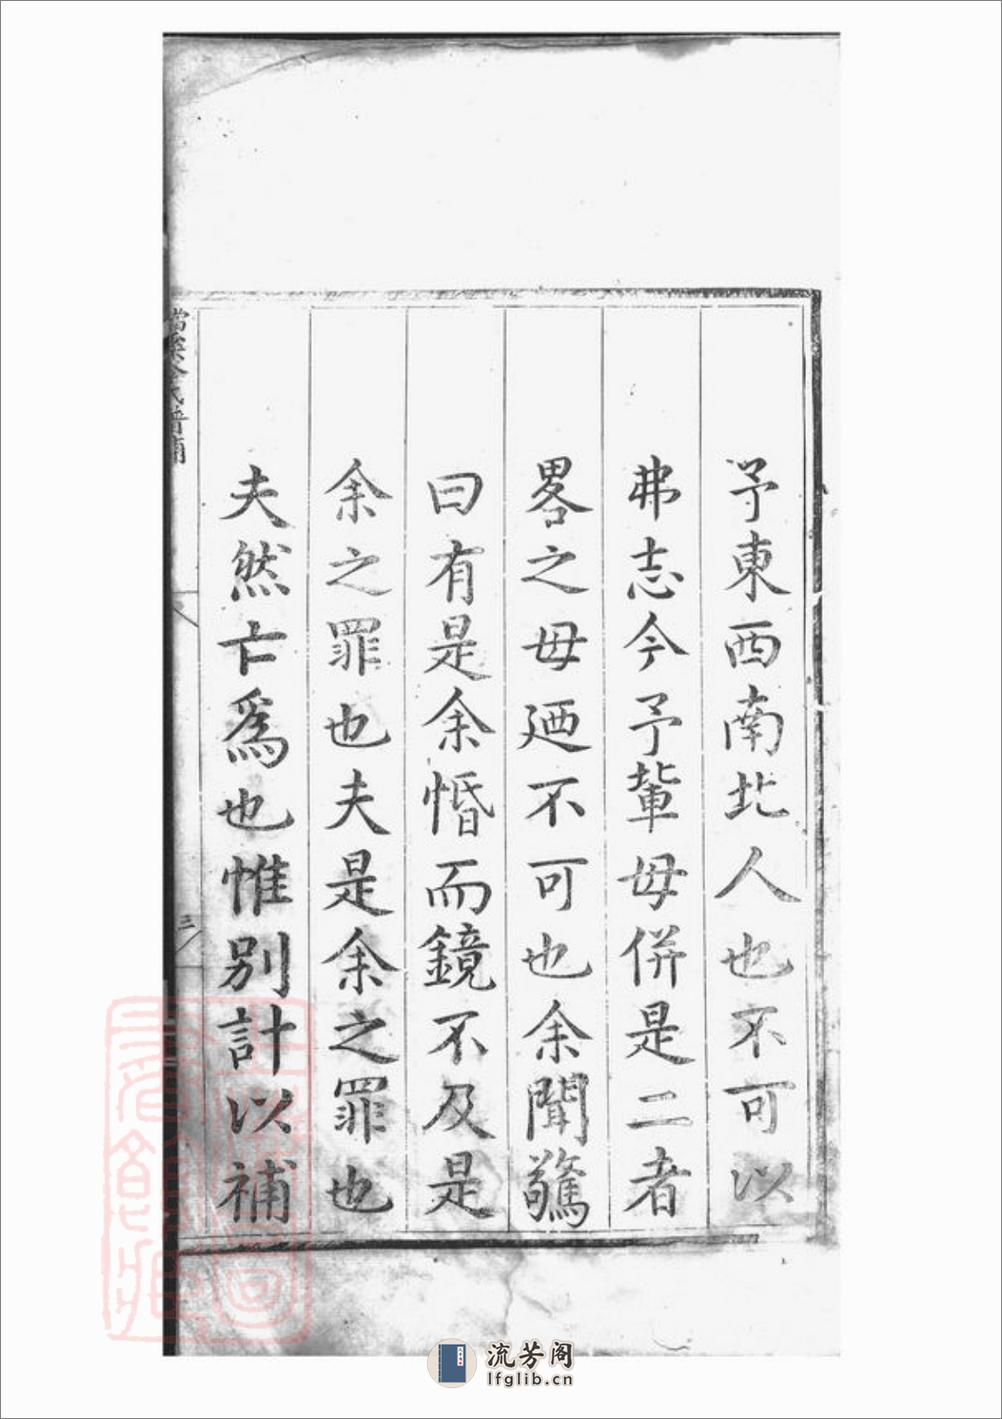 予東西南北人也不可以
弗志今予輩毋併是二者
畧之毋廼不可也余聞驚
曰有是余惛而鏡不及是
余之罪也夫是余之罪也
夫然亡爲也惟別計以補
氏譜
三
流芳阁
lfglib.cn